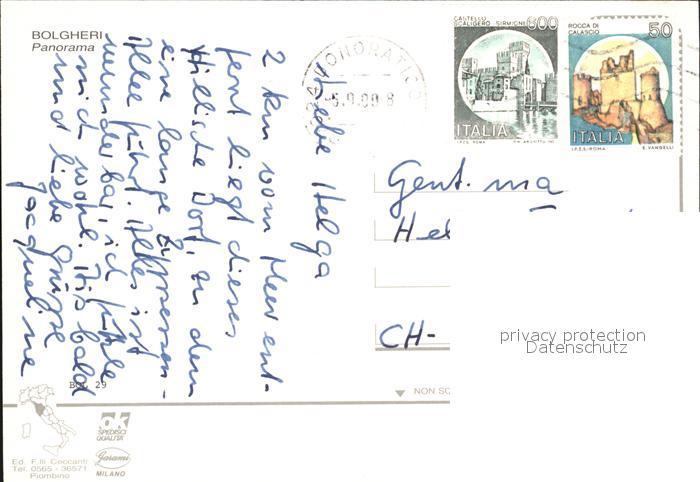 BOLGHERI
Panorama
Liebe Helga
2 km vom Meer ent-
fernt liegt dieses
idyllische Dorf, zu dem
eine lange Zypressen-
Allee führt. Alles ist
wunderbar, ich fühle
mich wohl. Bis bald
und liebe Grüsse
Jacqueline
BOL 29
Ed. F.lli Ceccanti
Tel. 0565 - 36571
Piombino
ok
SPEDISCI
QUALITA'
Garami
MILANO
DONORATICO
5.9.88.8
CASTELLO
SCALIGERO SIRMIONE
600
ITALIA
I.P.Z.S. ROMA
ROCCA DI
CALASCIO
50
ITALIA
I.P.Z.S.-ROMA
E. VANGELLI
Gent.ma
Hel
CH-
privacy protection
Datenschutz
NON SC